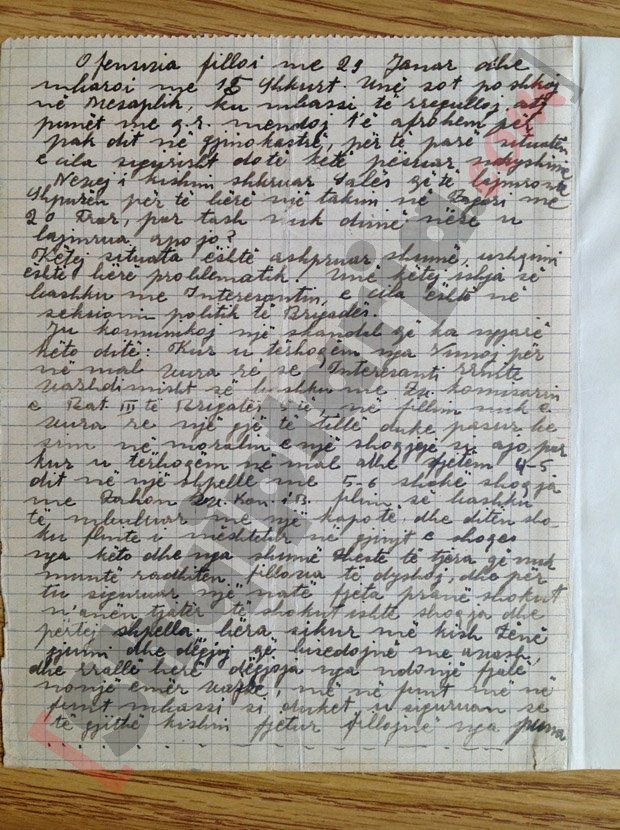 Ofensivia filloi me 29 Janar dhe
mbaroi me 15 Shkurt. Unë sot po shkoj
në Mesaplik, ku mbassi të rregulloj atj
punët me q.r. mendoj t'ë afrohem për
pak dit në gjinokastrë, për të parë situatën
e cila sigurisht do të ketë pësuar ndryshime
Nevej i kishim shkruar Salës që të lajmronte
Shpurën për të bërë një takim në Zagori me
20 Fror, por tash nuk dimë nëse u
lajmrua apo jo?
Këtej situata është ashpruar shumë, ushqimi
është bërë problematik. Unë këtej ishja së
bashku me Interesantin, e cila është në
seksioni politik të Brigadës.
Ju komunikoj një skandal që ka ngjarë
këto ditë: Kur u tërhoqëm nga Vunoj për
në mal vura re se Interesanti rrinte
vazhdimisht së bashku me Zv. komisarin
e Bat III të Brigatës në fillim nuk e
vura re një gjë të tillë duke pasur be
sim në moralin e një shoqjeje si ajo, por
kur u tërhoqëm në mal dhe fjetëm 4-5
dit në një shpellë me 5-6 shokë shoqja
me Zv. Kom i B. flini së bashku
të mbuluar me një kapotë, dhe diten sho
ku flinte i mështetur në gjunjt e shoqes
nga këto dhe nga shumë gjeste të tjera që nuk
muntë radhiten, fillova të dyshoj, dhe për
tu siguruar një natë fjeta pranë shokut
n'anën tjatër të shokut ishte shoqja dhe
përtej shpella, bëra sikur më kish zënë
gjumi dhe dëgjoj që bisedojnë me
dhe rrallë herë dëgjoja nga ndonjë fjalë
nonjë emër më në funt me në
funt mbassi si duket u siguruan se
të gjithë kishim fjetur fillojnë nga puna